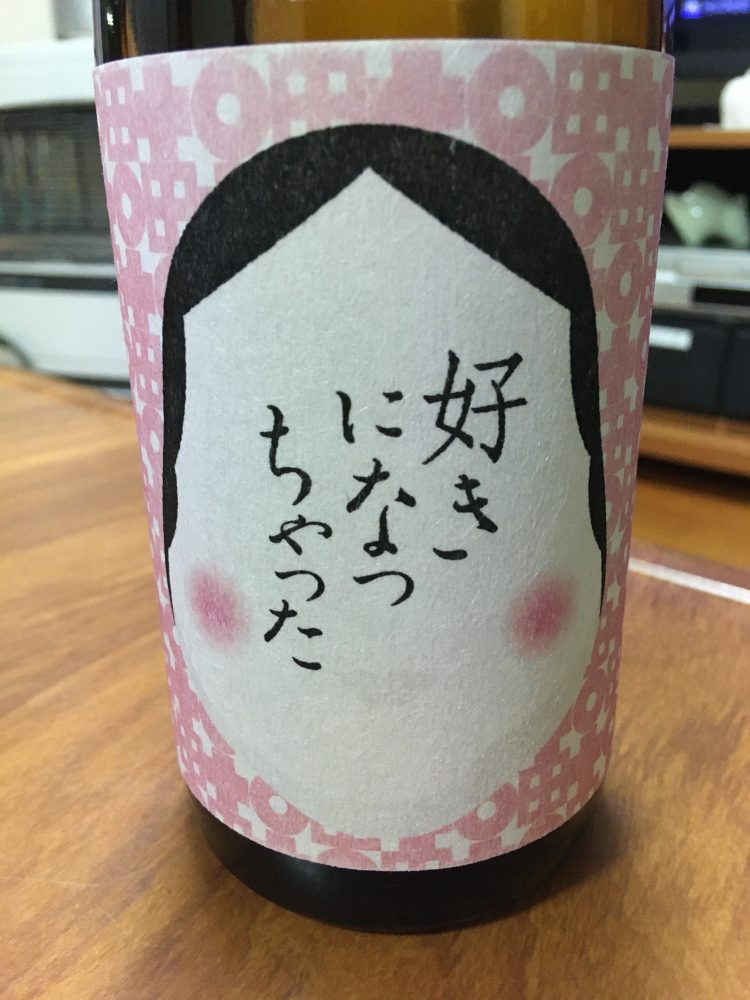 好き
になっ
ちゃった